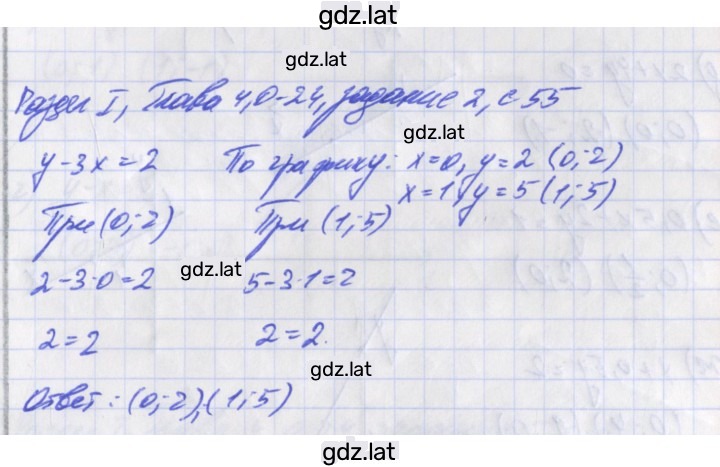 gdz.lat
gdz.lat
Раздел I, Глава 4, О-24, задание 2, с 55
gdz.lat
y-3x=2 По графику: x=0, y=2 (0;-2)
x=1, y=5 (1;-5)
При (0;-2) При (1;-5)
gdz.lat
2-3·0=2 5-3·1=2
2=2 2=2.
gdz.lat
Ответ: (0;-2), (1;-5)
gdz.lat